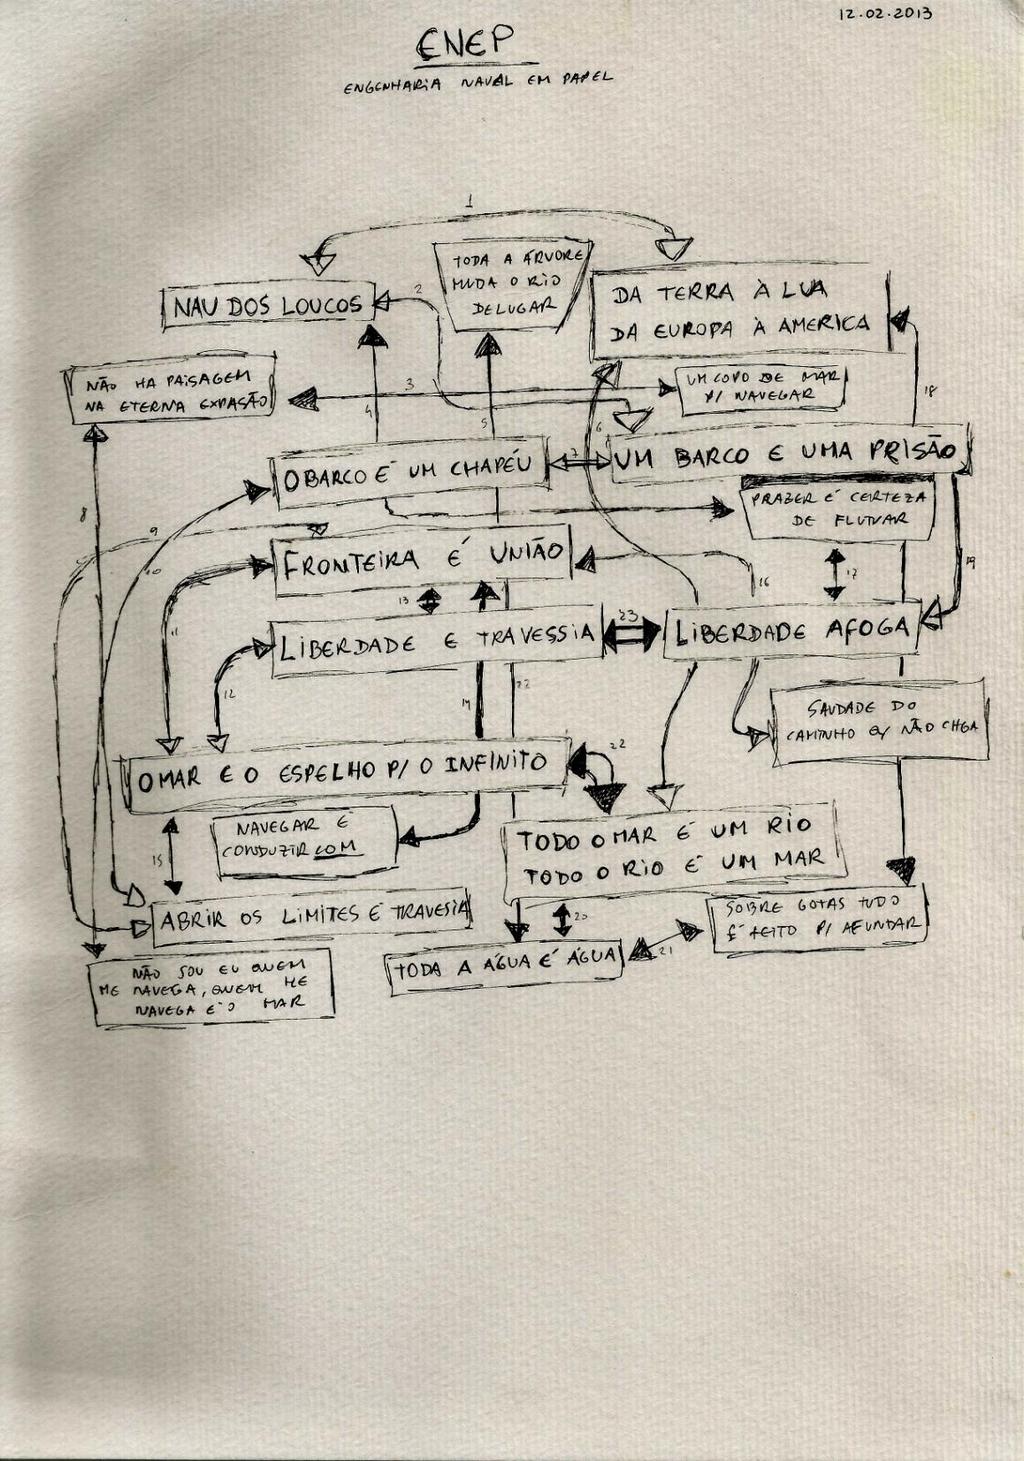 12.02.2013
ENEP
ENGENHARIA NAVAL EM PAPEL
1
TODA A ÁRVORE
MUDA O RIO
DE LUGAR
2
NAU DOS LOUCOS
DA TERRA À LUA
DA EUROPA À AMERICA
NÃO HA PAISAGEM
NA ETERNA EXPASÃO
3
UM COPO DE MAR
P/ NAVEGAR
18
4
5
6
O BARCO É UM CHAPÉU
7
UM BARCO E UMA PRISÃO
PRAZER É CERTEZA
DE FLUTUAR
8
9
10
FRONTEIRA É UNIÃO
16
17
19
11
13
LIBERDADE E TRAVESSIA
23
LIBERDADE AFOGA
12
14
22
SAUDADE DO
CAMINHO Q/ NÃO CHGA
O MAR E O ESPELHO P/ O INFINITO
22
NAVEGAR E
CONDUZIR COM
TODO O MAR É UM RIO
TODO O RIO É UM MAR
15
ABRIR OS LIMITES E TRAVESIA
20
SOBRE GOTAS TUDO
É FEITO P/ AFUNDAR
21
TODA A ÁGUA É ÁGUA
NÃO SOU EU QUEM
ME NAVEGA, QUEM ME
NAVEGA E O MAR